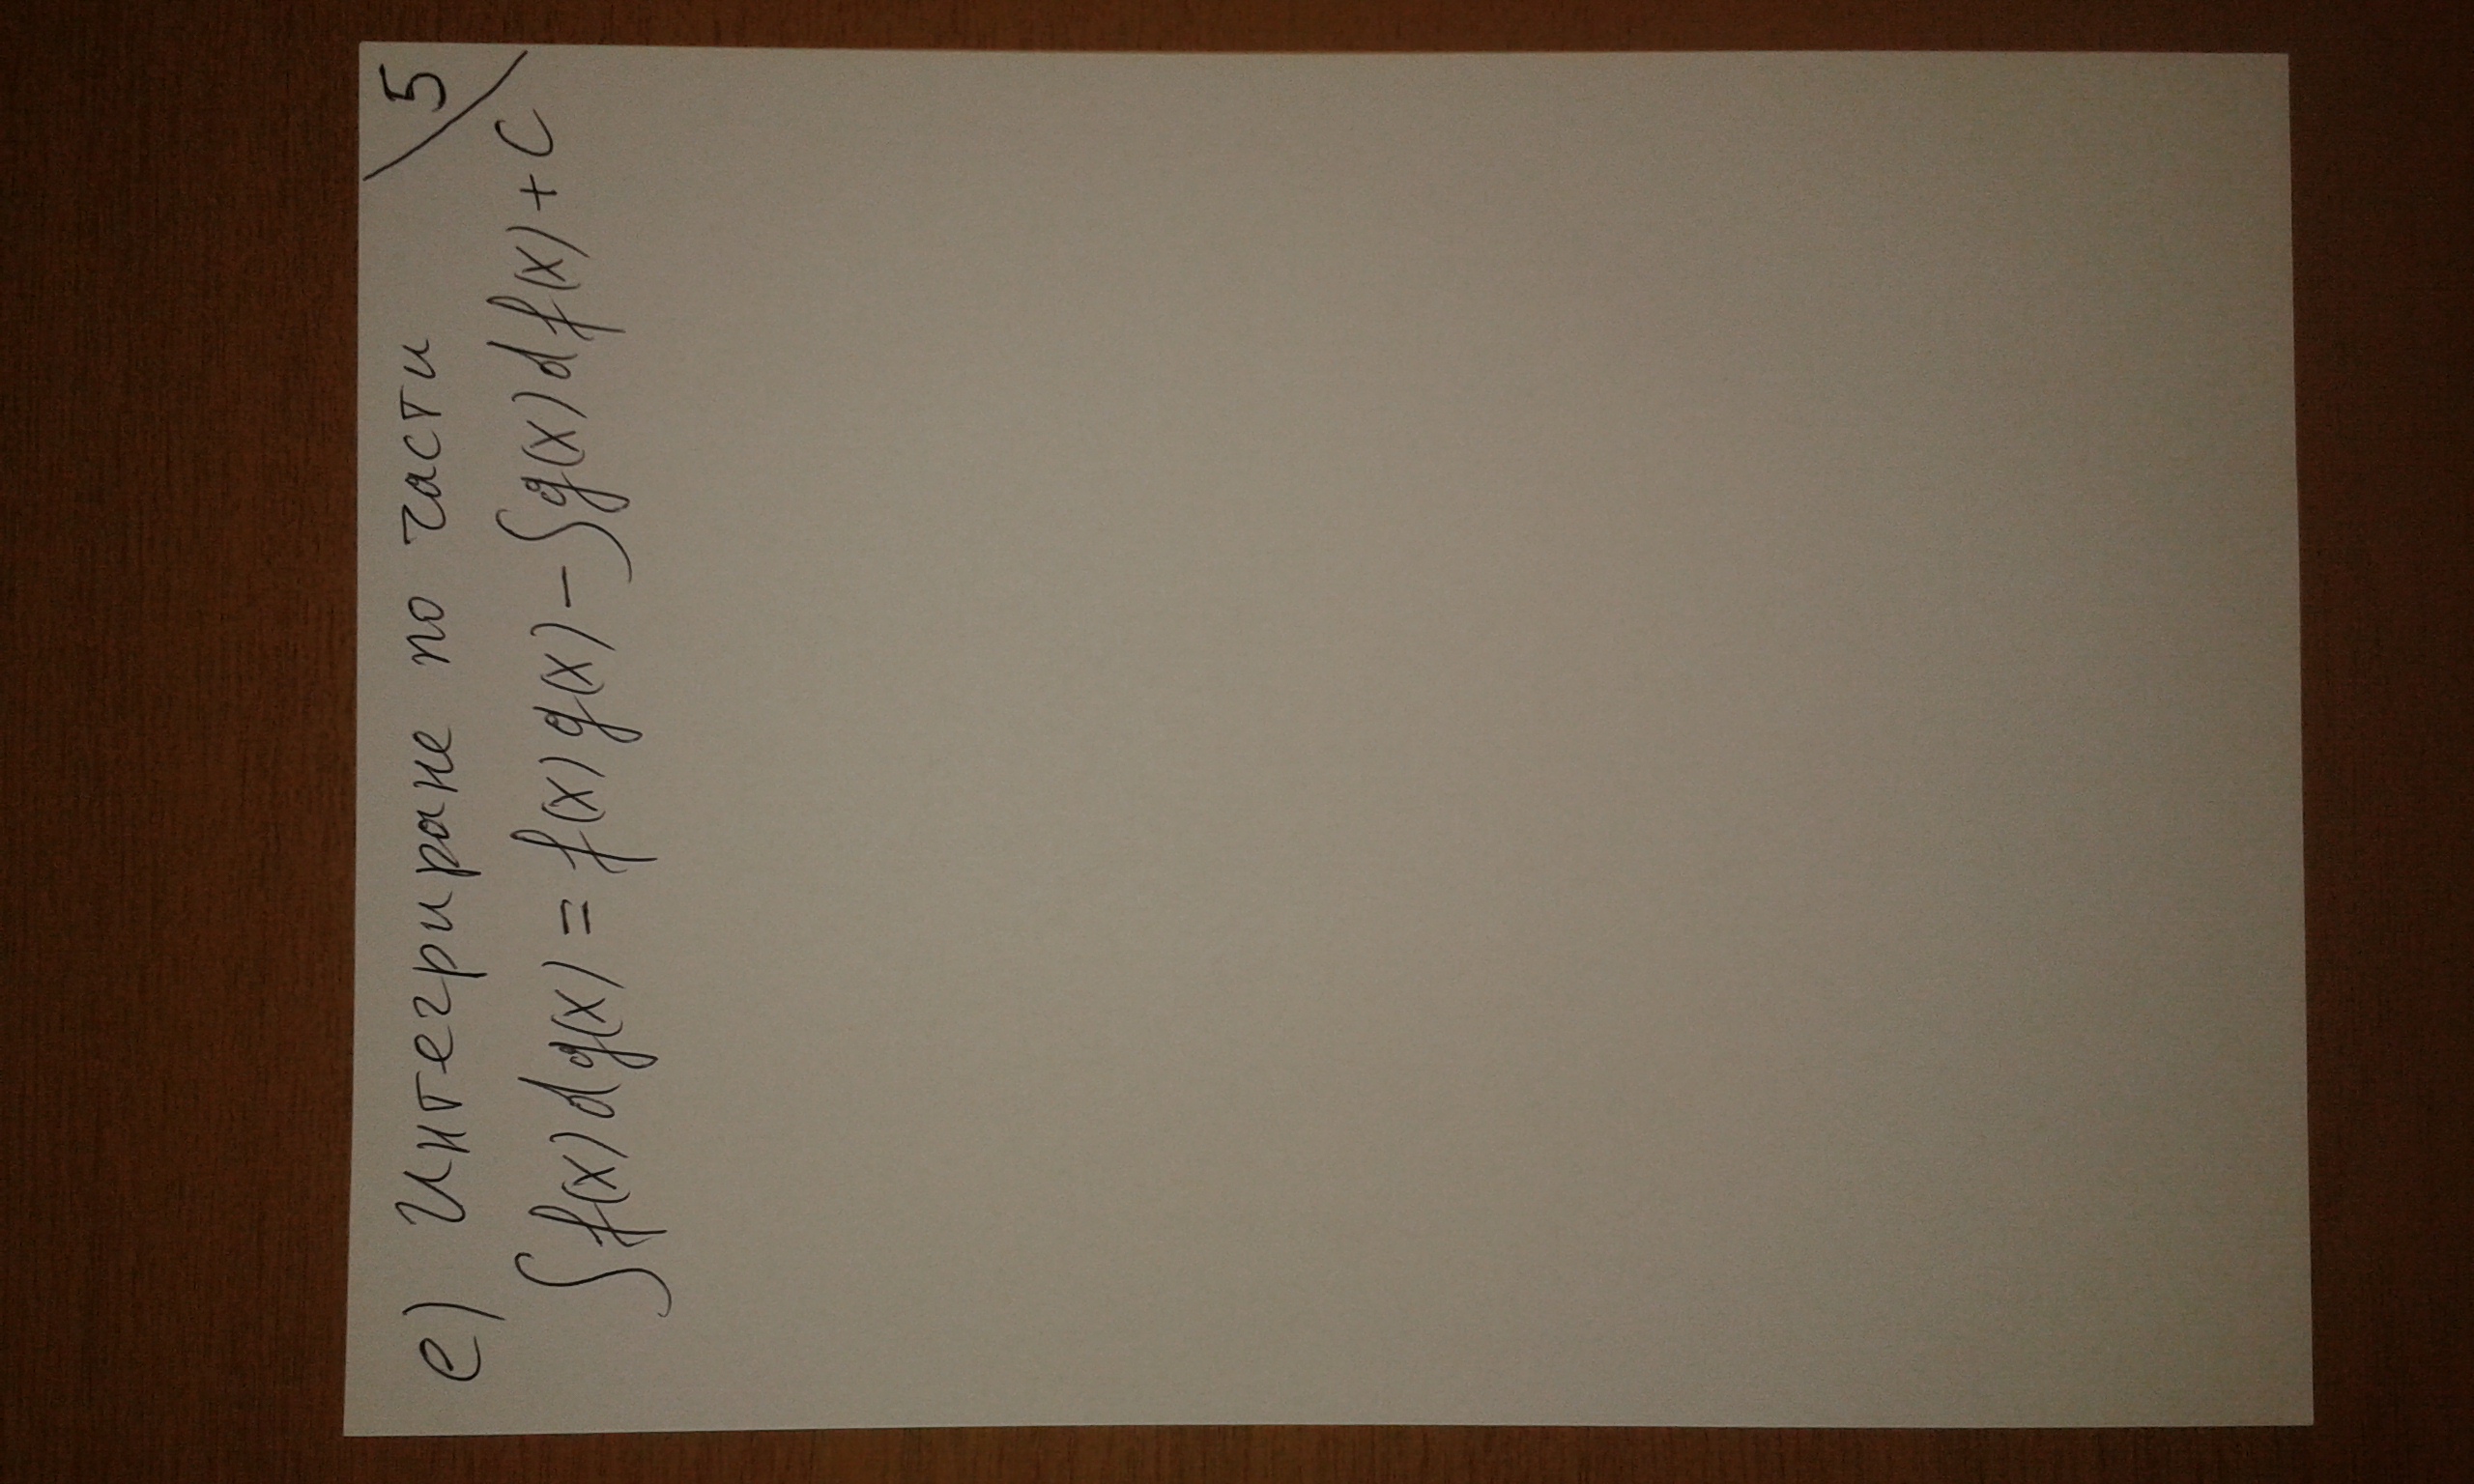 е) Интегриране по части
5
∫f(x)dg(x) = f(x)g(x) - ∫g(x)df(x) + C